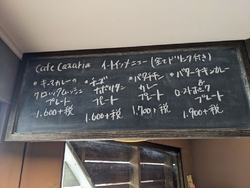 Cafe Cazaria イートインメニュー(全てドリンク付き)
*キーマカレーの
クロックムッシュ
プレート
1.600+税
*チーズ
ナポリタン
プレート
1.600+税
*バタチキン
カレー
プレート
1.700+税
*バターチキンカレー
&
プレート
1.900+税